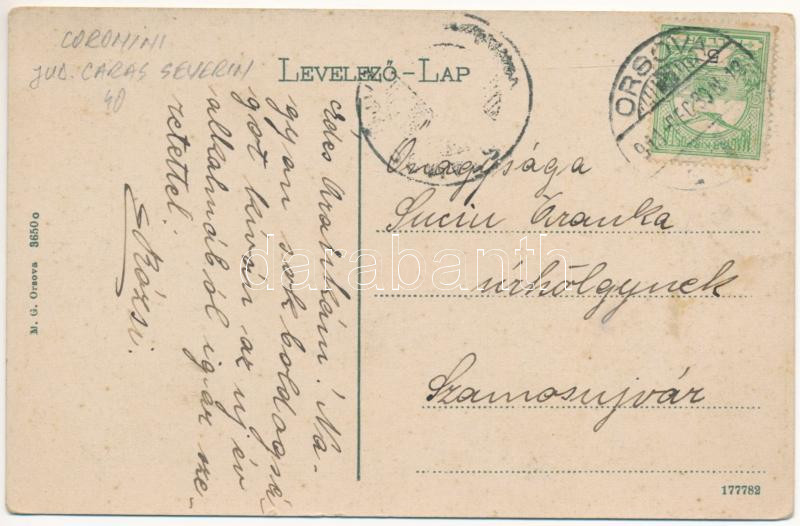 COROMINI
JUD. CARAS SEVERIN
40
LEVELEZŐ-LAP
ORSOVA
Édes Arankám! Na-
gyon sok boldogsá
got kíván az uj év
alkalmából igaz sze-
retettel:
Rózsi.
Önagysága
Suciu Aranka
úrhölgynek
Szamosujvár
M. G. Orsova 3650 o
177782
darabanth